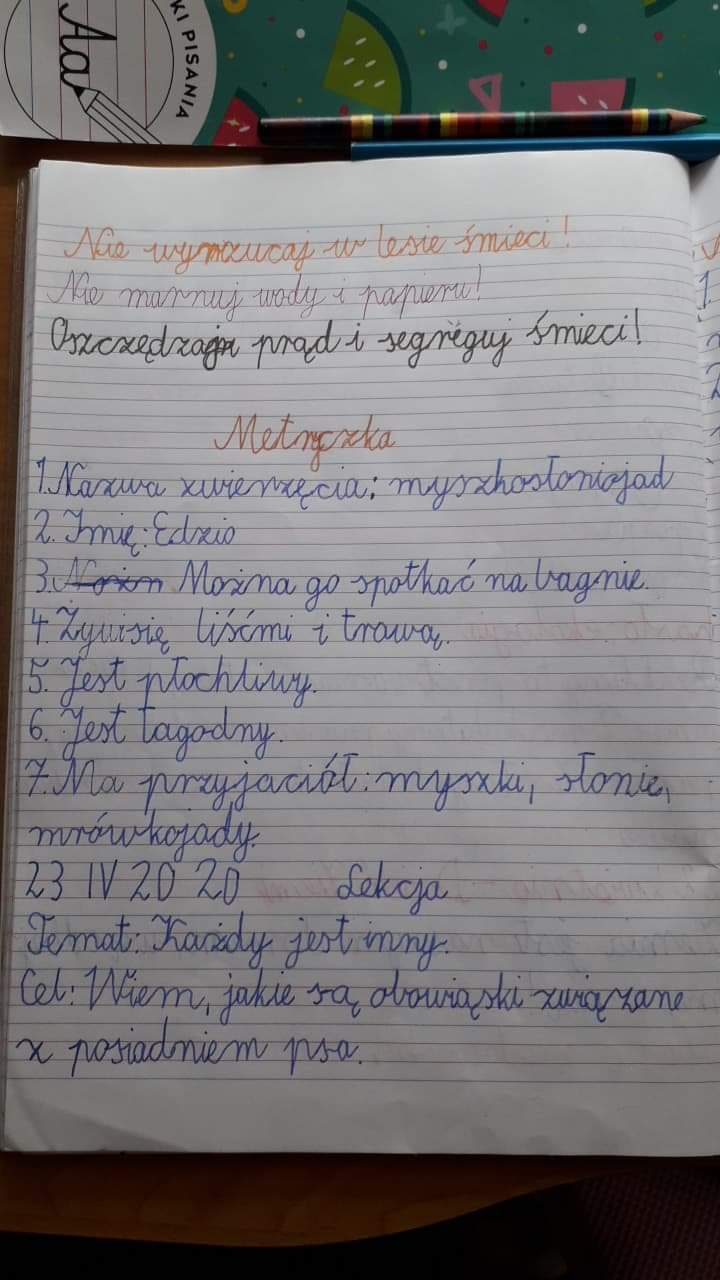 KI PISANIA
Aa
Nie wyrzucaj w lesie śmieci!
Nie marnuj wody i papieru!
Oszczędzaj prąd i segreguj śmieci!
Metryczka
1. Nazwa zwierzęcia: myszkosłoniojad
2. Imię: Edzio
3. Można go spotkać na bagnie.
4. Żywi się liśćmi i trawą.
5. Jest płochliwy.
6. Jest łagodny.
7. Ma przyjaciół: myszki, słonie,
mrówkojady.
23 IV 20 20 Lekcja
Temat: Każdy jest inny.
Cel: Wiem, jakie są obowiąski związane
z posiadniem psa.